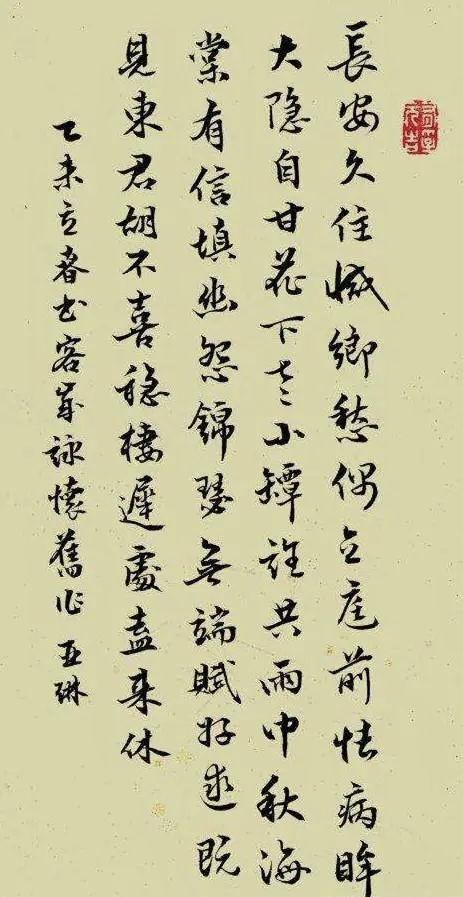 長安久住減鄉愁偶立庭前怯病眸
大隐自甘花下老小罈誰共雨中秋海
棠有信填幽怨錦瑟無端賦好逑既
見東君胡不喜穩棲遲處盍来休
乙未立春书客歲詠懷舊作 亚琳